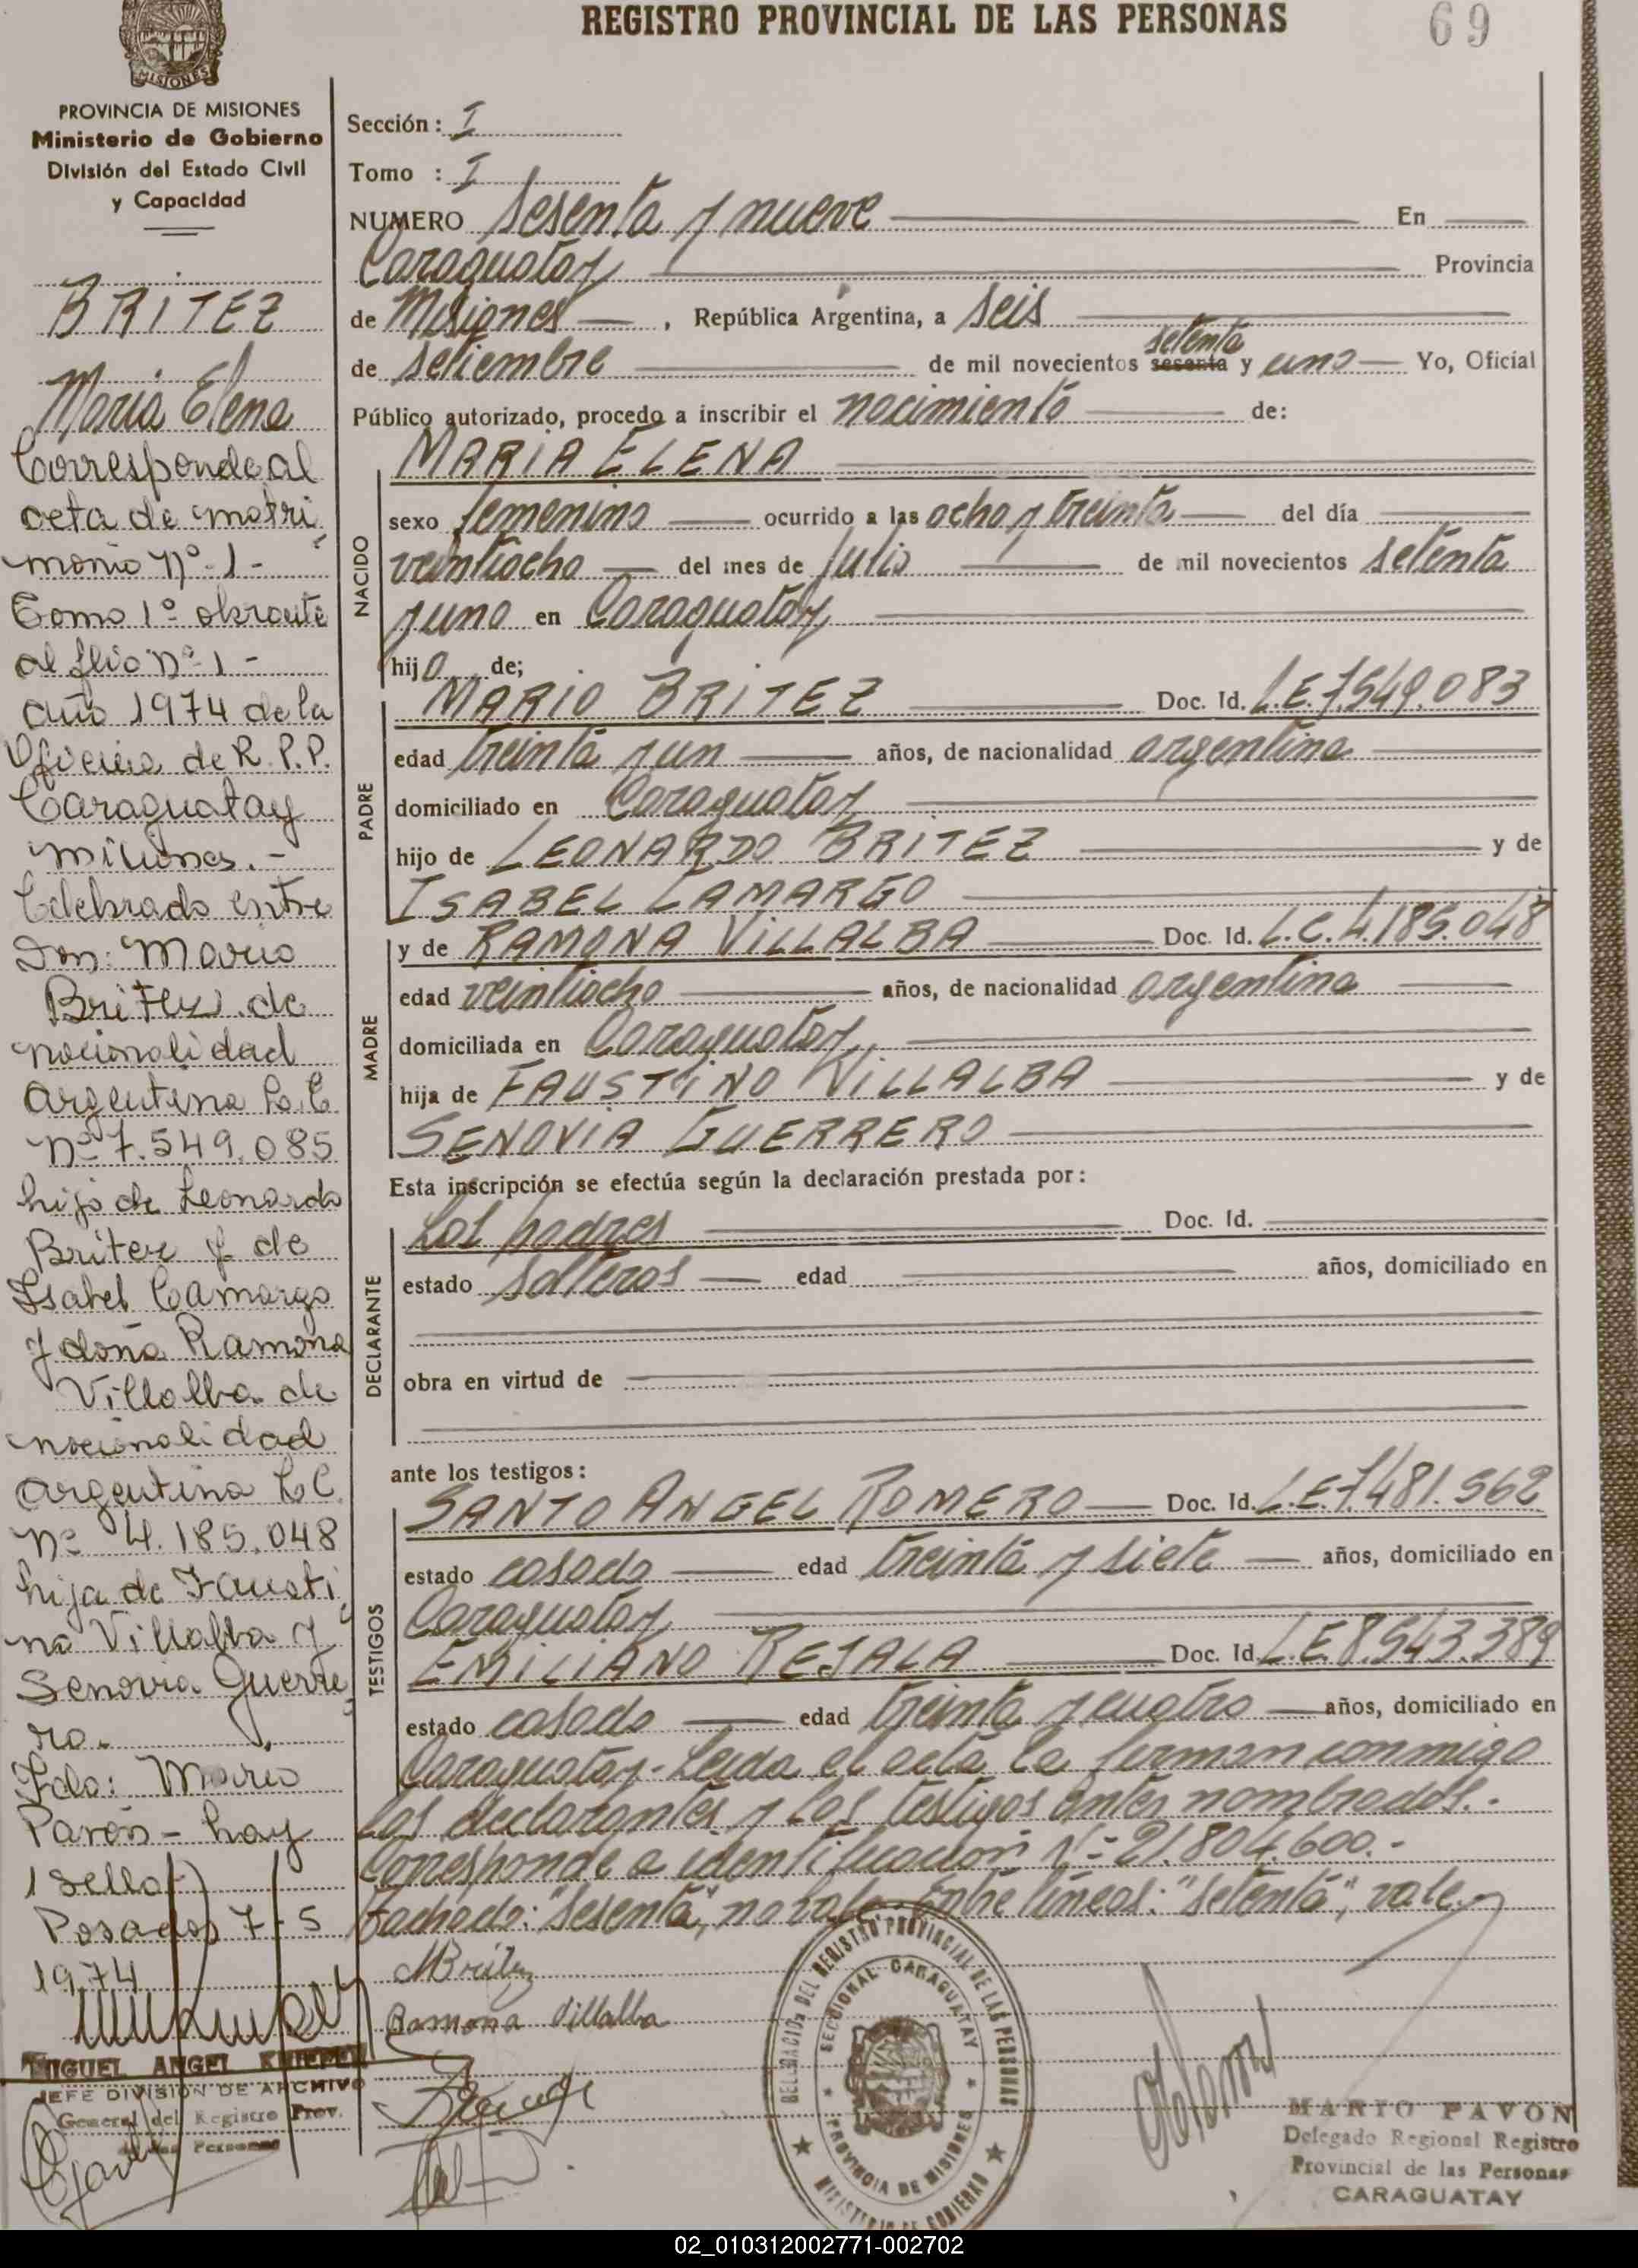 REGISTRO PROVINCIAL DE LAS PERSONAS
69
MISIONES
PROVINCIA DE MISIONES
Ministerio de Gobierno
División del Estado Civil
y Capacidad
BRITEZ
Maria Elena
Corresponde al
acta de matri
monio Nº 1 -
Como 1º obrante
al flio nº 1 -
año 1974 de la
Oficina de R. P. P.
Caraguatay
misiones. -
Celebrado entre
Don: Mario
Britez de
nacionalidad
argentina L. E
nº 7.549.085
hijo de Leonardo
Britez y de
Isabel Camargo
y doña Ramona
Villalba de
nacionalidad
argentina L C.
nº 4.185.048
hija de Fausti
no Villalba y
Senovia Guerre
ro.
Fdo: Mario
Pavón - hay
1 sello
Posadas 7-5
1974
MIGUEL ANGEL
JEFE DIVISION DE ARCHIVO
General del Registro Prov.
de las Personas
Sección: I
Tomo : I
NUMERO Sesenta y nueve En
Caraguatay Provincia
de Misiones , República Argentina, a seis
de setiembre de mil novecientos sesenta setenta y uno Yo, Oficial
Público autorizado, procedo a inscribir el nacimiento de:
NACIDO
MARIA ELENA
sexo femenino ocurrido a las ocho y treinta del día
veintiocho del mes de Julio de mil novecientos setenta
y uno en Caraguatay
hija de;
PADRE
MARIO BRITEZ Doc. Id. L.E. 7.549.083
edad treinta y un años, de nacionalidad argentina
domiciliado en Caraguatay
hijo de LEONARDO BRITEZ y de
ISABEL CAMARGO
MADRE
y de RAMONA VILLALBA Doc. Id. L.C. 4.185.048
edad veintiocho años, de nacionalidad argentina
domiciliada en Caraguatay
hija de FAUSTINO VILLALBA y de
SENOVIA GUERRERO
Esta inscripción se efectúa según la declaración prestada por:
DECLARANTE
Los padres Doc. Id.
estado solteros edad años, domiciliado en
obra en virtud de
ante los testigos:
TESTIGOS
SANTO ANGEL ROMERO Doc. Id. L.E. 7.481.562
estado casado edad treinta y siete años, domiciliado en
Caraguatay
EMILIANO REJALA Doc. Id. L.E. 8.543.389
estado casado edad treinta y cuatro años, domiciliado en
Caraguatay - Leida el acta la firman conmigo
los declarantes y los testigos antes nombrados. -
Corresponde a identificación Nº 21.804.600. -
Tachado: "sesenta", no vale. Entre lineas: "setenta", vale
MBritez
Ramona Villalba
DELEGACION DEL REGISTRO PROVINCIAL DE LAS PERSONAS
SECCIONAL CARAGUATAY
PROVINCIA DE MISIONES
MINISTERIO DE GOBIERNO
MARIO PAVON
Delegado Regional Registro
Provincial de las Personas
CARAGUATAY
02_010312002771-002702